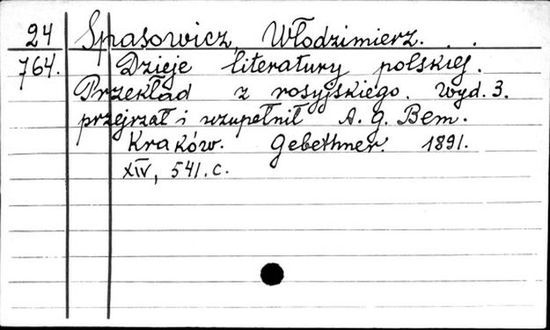 24 Spasowicz, Włodzimierz. . .
764. Dzieje literatury polskiej.
Przekład z rosyjskiego. Wyd. 3.
przejrzał i uzupełnił A. G. Bem.
Kraków. Gebethner. 1891.
XIV, 541. c.